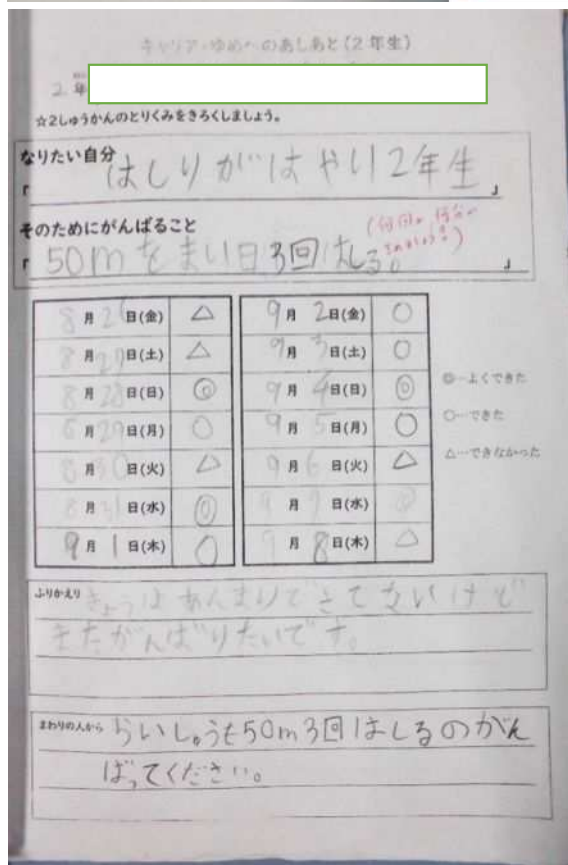 キャリア・ゆめへのあしあと(2年生)
2年
☆2しゅうかんのとりくみをきろくしましょう。
なりたい自分
「はしりがはやい2年生」
そのためにがんばること
「50mをまい日3回はしる。」
8月26日(金) △
8月27日(土) △
8月28日(日) ◎
8月29日(月) ○
8月30日(火) △
8月31日(水) ◎
9月1日(木) ○
9月2日(金) ○
9月3日(土) ○
9月4日(日) ◎
9月5日(月) ○
9月6日(火) △
9月7日(水) ◎
9月8日(木) △
◎…よくできた
○…できた
△…できなかった
ふりかえり
きょうはあんまりできてないけど
またがんばりたいです。
まわりの人から
らいしゅうも50m3回はしるのがん
ばってください。